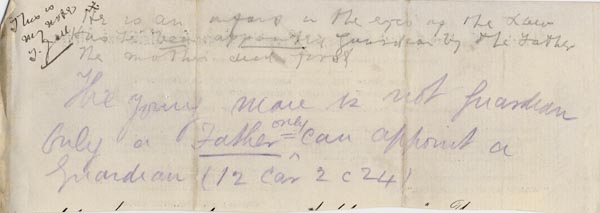 This is
my note
He is an infant in the eyes of the Law
Guardian by the Father
the mother died first
The young man is not Guardian
Only a Father only can appoint a
Guardian (12 Car 2 c 24)